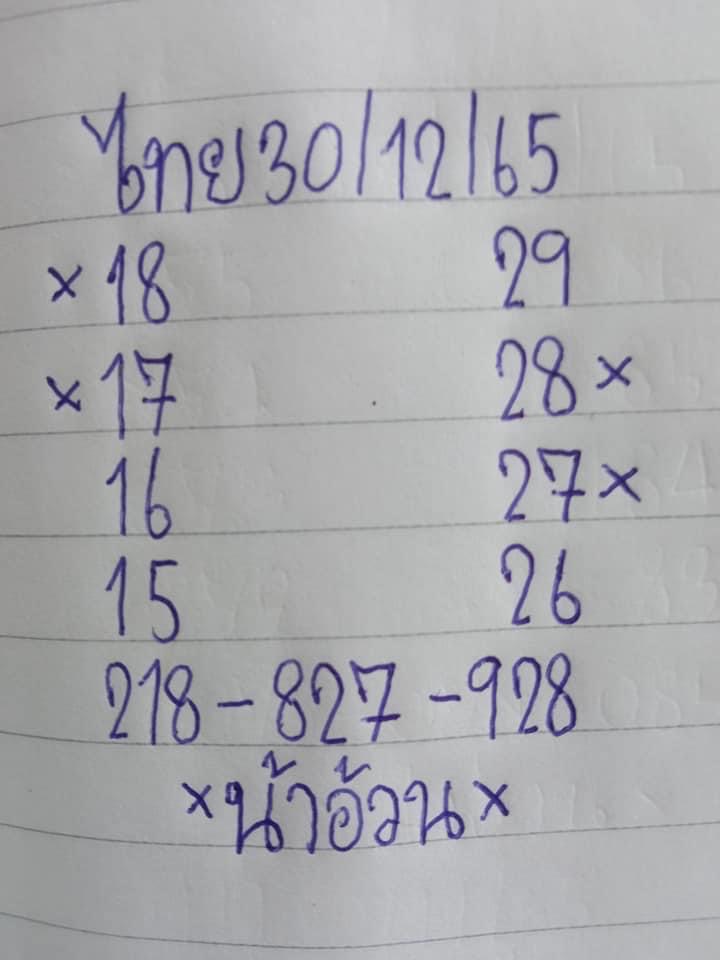 ไทย30/12/65
×18 29
×17 28×
16 27×
15 26
218-827-928
×น้าอ้วน×